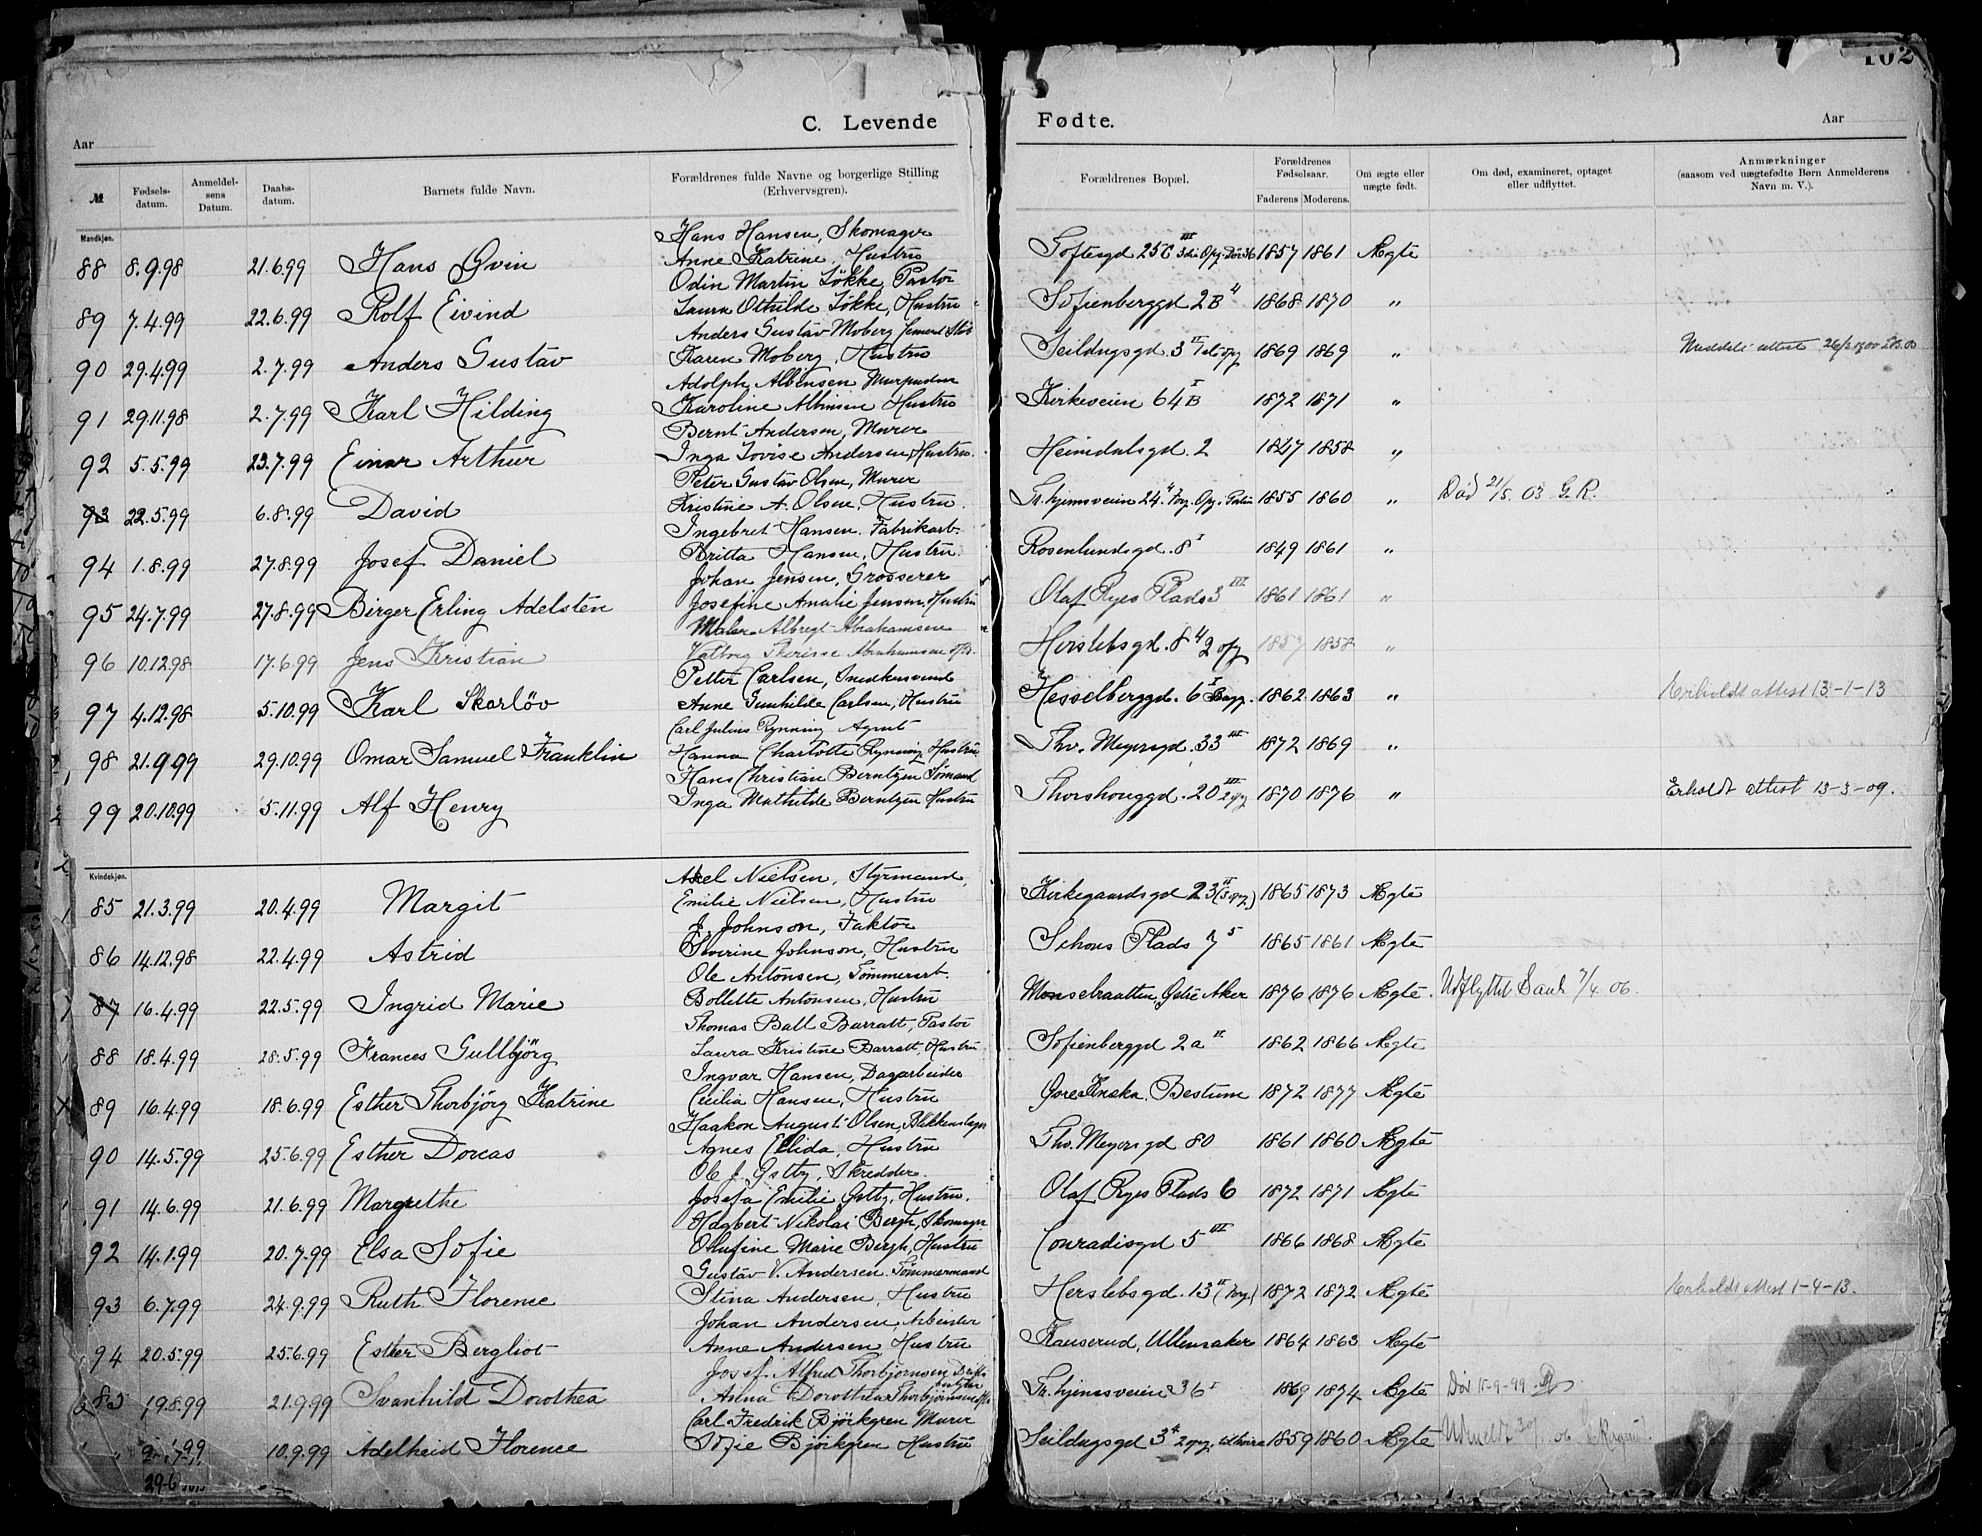 102
C. Levende Fødte.
Aar Aar
№ Fødselsdatum. Anmeldelsens Datum. Daabsdatum. Barnets fulde Navn. Forældrenes fulde Navne og borgerlige Stilling (Erhvervsgren). Forældrenes Bopæl. Forældrenes Fødselsaar. Faderens Moderens. Om ægte eller uægte født. Om død, examineret, optaget eller udflyttet. Anmærkninger (saasom ved uægtefødte Børn Anmelderens Navn m. V.).
Mandkjøn.
Hans Hansen, Skomager
88 8.9.98 21.6.99 Hans Qvin Anne Katrine, Hustru Toftesgd 25C III 1857 1861 Ægte
Odin Martin Løkke, Pastor
89 7.4.99 22.6.99 Rolf Eivind Laura Othilde Løkke, Hustru Sofienberggd 2B 4 1868 1870 "
Anders Gustav Moberg
90 29.4.99 2.7.99 Anders Gustav Karen Moberg, Hustru Seildugsgd. 3 II 1869 1869 " Meddelt attest
Adolph Albinsen
91 29.11.98 2.7.99 Karl Hilding Karoline Albinsen Hustru Kirkeveien 64B I 1872 1871 "
Bernt Andersen, Murer
92 5.5.99 23.7.99 Einar Arthur Inga Lovise Andersen, Hustru. Heimdalsgd. 2 1847 1858 "
Peter Gustav Olsen, Murer
93 22.5.99 6.8.99 David Kristine A. Olsen, Hustru. Tr.hjemsveien 24 1855 1860 " Død 21/5. 03 G.R.
Ingebret Hansen. Fabrikarb.
94 1.8.99 27.8.99 Josef Daniel Britta Hansen, Hustru. Rosenlundsgd. 8 I 1849 1861 "
Johan Jensen, Grosserer
95 24.7.99 27.8.99 Birger Erling Adelsten Josefine Amalie Jensen, Hustru Olaf Ryes Plads 3 III 1861 1861 "
Maler Albregt Abrahamsen
96 10.12.98 17.6.99 Jens Kristian Valborg Therese Abrahamsen Herslebsgd. 8 4 2 opg 1857 1858 "
Petter Carlsen, Snedkersvend
97 4.12.98 5.10.99 Karl Skarløv Anne Gunhilde Carlsen, Hustru Hesselberggd. 6 I Bagg. 1862 1863 " Erholdt attest 13-1-13
Carl Julius Rynning Agent
98 21.9.99 29.10.99 Omar Samuel Franklin Hanna Charlotte Rynning Hustru Thv. Meyersgd. 33 III 1872 1869 "
Hans Christian Berntzen Sømand
99 20.10.99 5.11.99 Alf Henry Inga Mathilde Berntzen Hustru Thorshouggd. 20 III 2 opg 1870 1876 " Erholdt attest 13-3-09.
Kvindekjøn.
Axel Nielsen, Styrmand,
85 21.3.99 20.4.99 Margit Emilie Nielsen, Hustru Kirkegaardsgd 23 II (3 opg.) 1865 1873 Ægte
J. Johnson, Faktor
86 14.12.98 22.4.99 Astrid Severine Johnson, Hustru Schous Plads 7 5 1865 1861 Ægte
Ole Antonsen, Tømmerarb.
87 16.4.99 22.5.99 Ingrid Marie Bollette Antonsen, Hustru Monsebraatten, Østre Aker 1876 1876 Ægte. Udflyttet 7/4 06.
Thomas Ball Barratt, Pastor
88 18.4.99 28.5.99 Frances Gullbjörg Laura Kristine Barratt, Hustru Sofienberggd 2a II 1862 1866 Ægte
Ingvar Hansen, Dagarbeider
89 16.4.99 18.6.99 Esther Thorbjörg Katrine Cecilia Hansen, Hustru Bestum 1872 1877 Ægte
Haakon August Olsen, Blikkenslager
90 14.5.99 25.6.99 Esther Dorcas Agnes Elida, Hustru Thv. Meyersgd 80 1861 1860 Ægte
Ole J. Østby, Skredder.
91 14.6.99 21.6.99 Margrethe Josefa Emilie Østby, Hustru. Olaf Ryes Plads 6 1872 1871 Ægte
Hagbert Nikolai Bergh, Skomager
92 14.1.99 20.7.99 Elsa Sofie Olufine Marie Bergh, Hustru Conradisgd 5 III 1866 1868 Ægte
Gustav V. Andersen Tømmermand
93 6.7.99 24.9.99 Ruth Florence Stina Andersen, Hustru Herslebsgd. 13 II 1872 1872 Ægte Erholdt attest 1-4-13.
Johan Andersen, Arbeider
94 20.5.99 25.6.99 Esther Bergliot Anne Andersen, Hustru Kauserud, Ullensaker 1864 1863 Ægte
Josef Alfred Thorbjørnsen
83 19.8.99 21.9.99 Svanhild Dorothea Anna Dorothea Thorbjørnsen Tr.hjemsveien 36 I 1869 1874 Ægte Død 11-9-99
Carl Fredrik Björkgren Murer
10.9.99 Adelheid Florence Sofie Björkgren Hustru Seildugsgd 3 2 opg. 1859 1860 Ægte Udmeldt 06
29-6